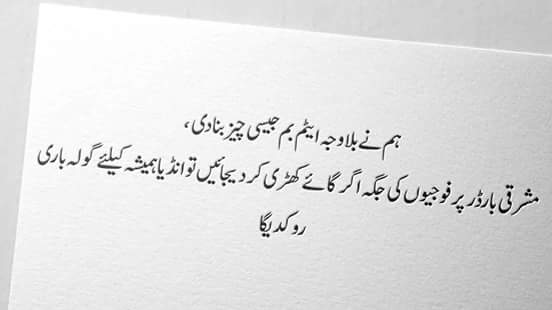 ہم نے بلاوجہ ایٹم بم جیسی چیز بنا دی،
مشرقی بارڈر پر فوجیوں کی جگہ اگر گائے کھڑی کر دیجائیں تو انڈیا ہمیشہ کیلئے گولہ باری
روکدیگا